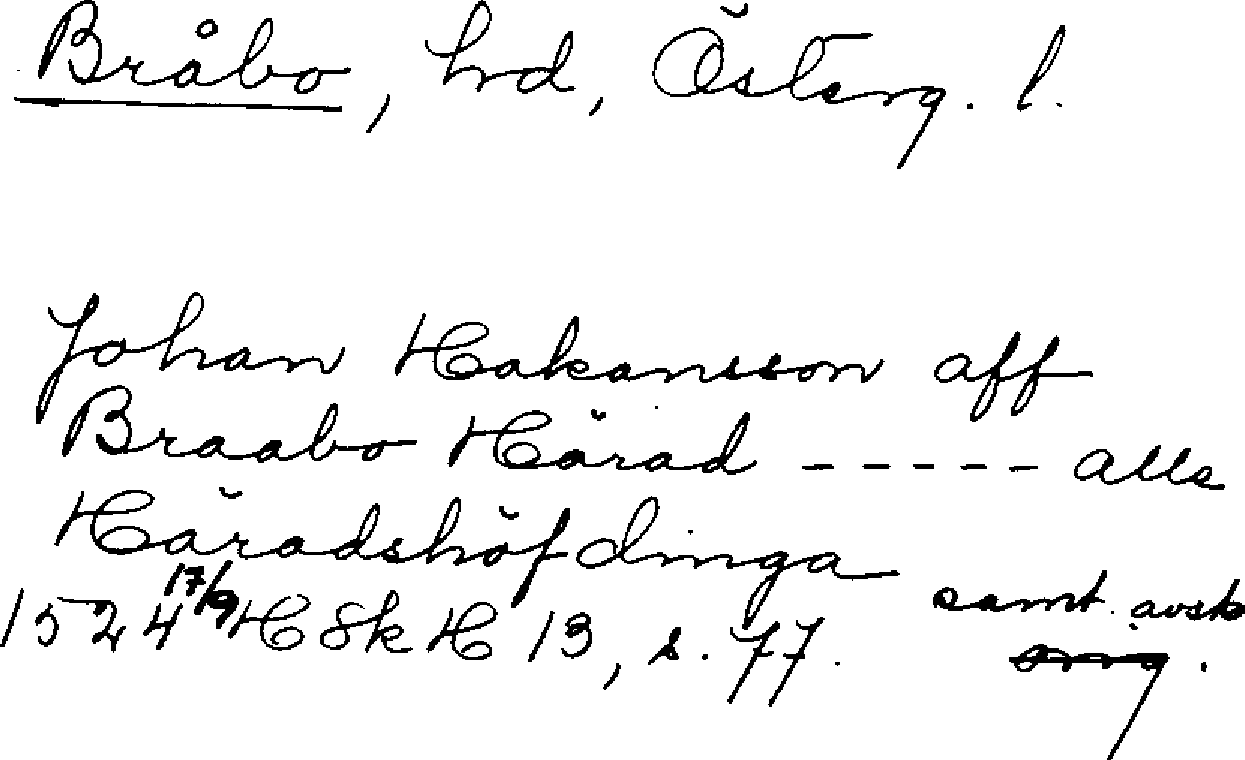 Bråbo, hrd, Österg. l.
Johan Hakansson aff
Braabo Härad ----- alls
Häradshöfdinga
1524 17/9 HSkH 13, s. 77. samt. avskr
orig.